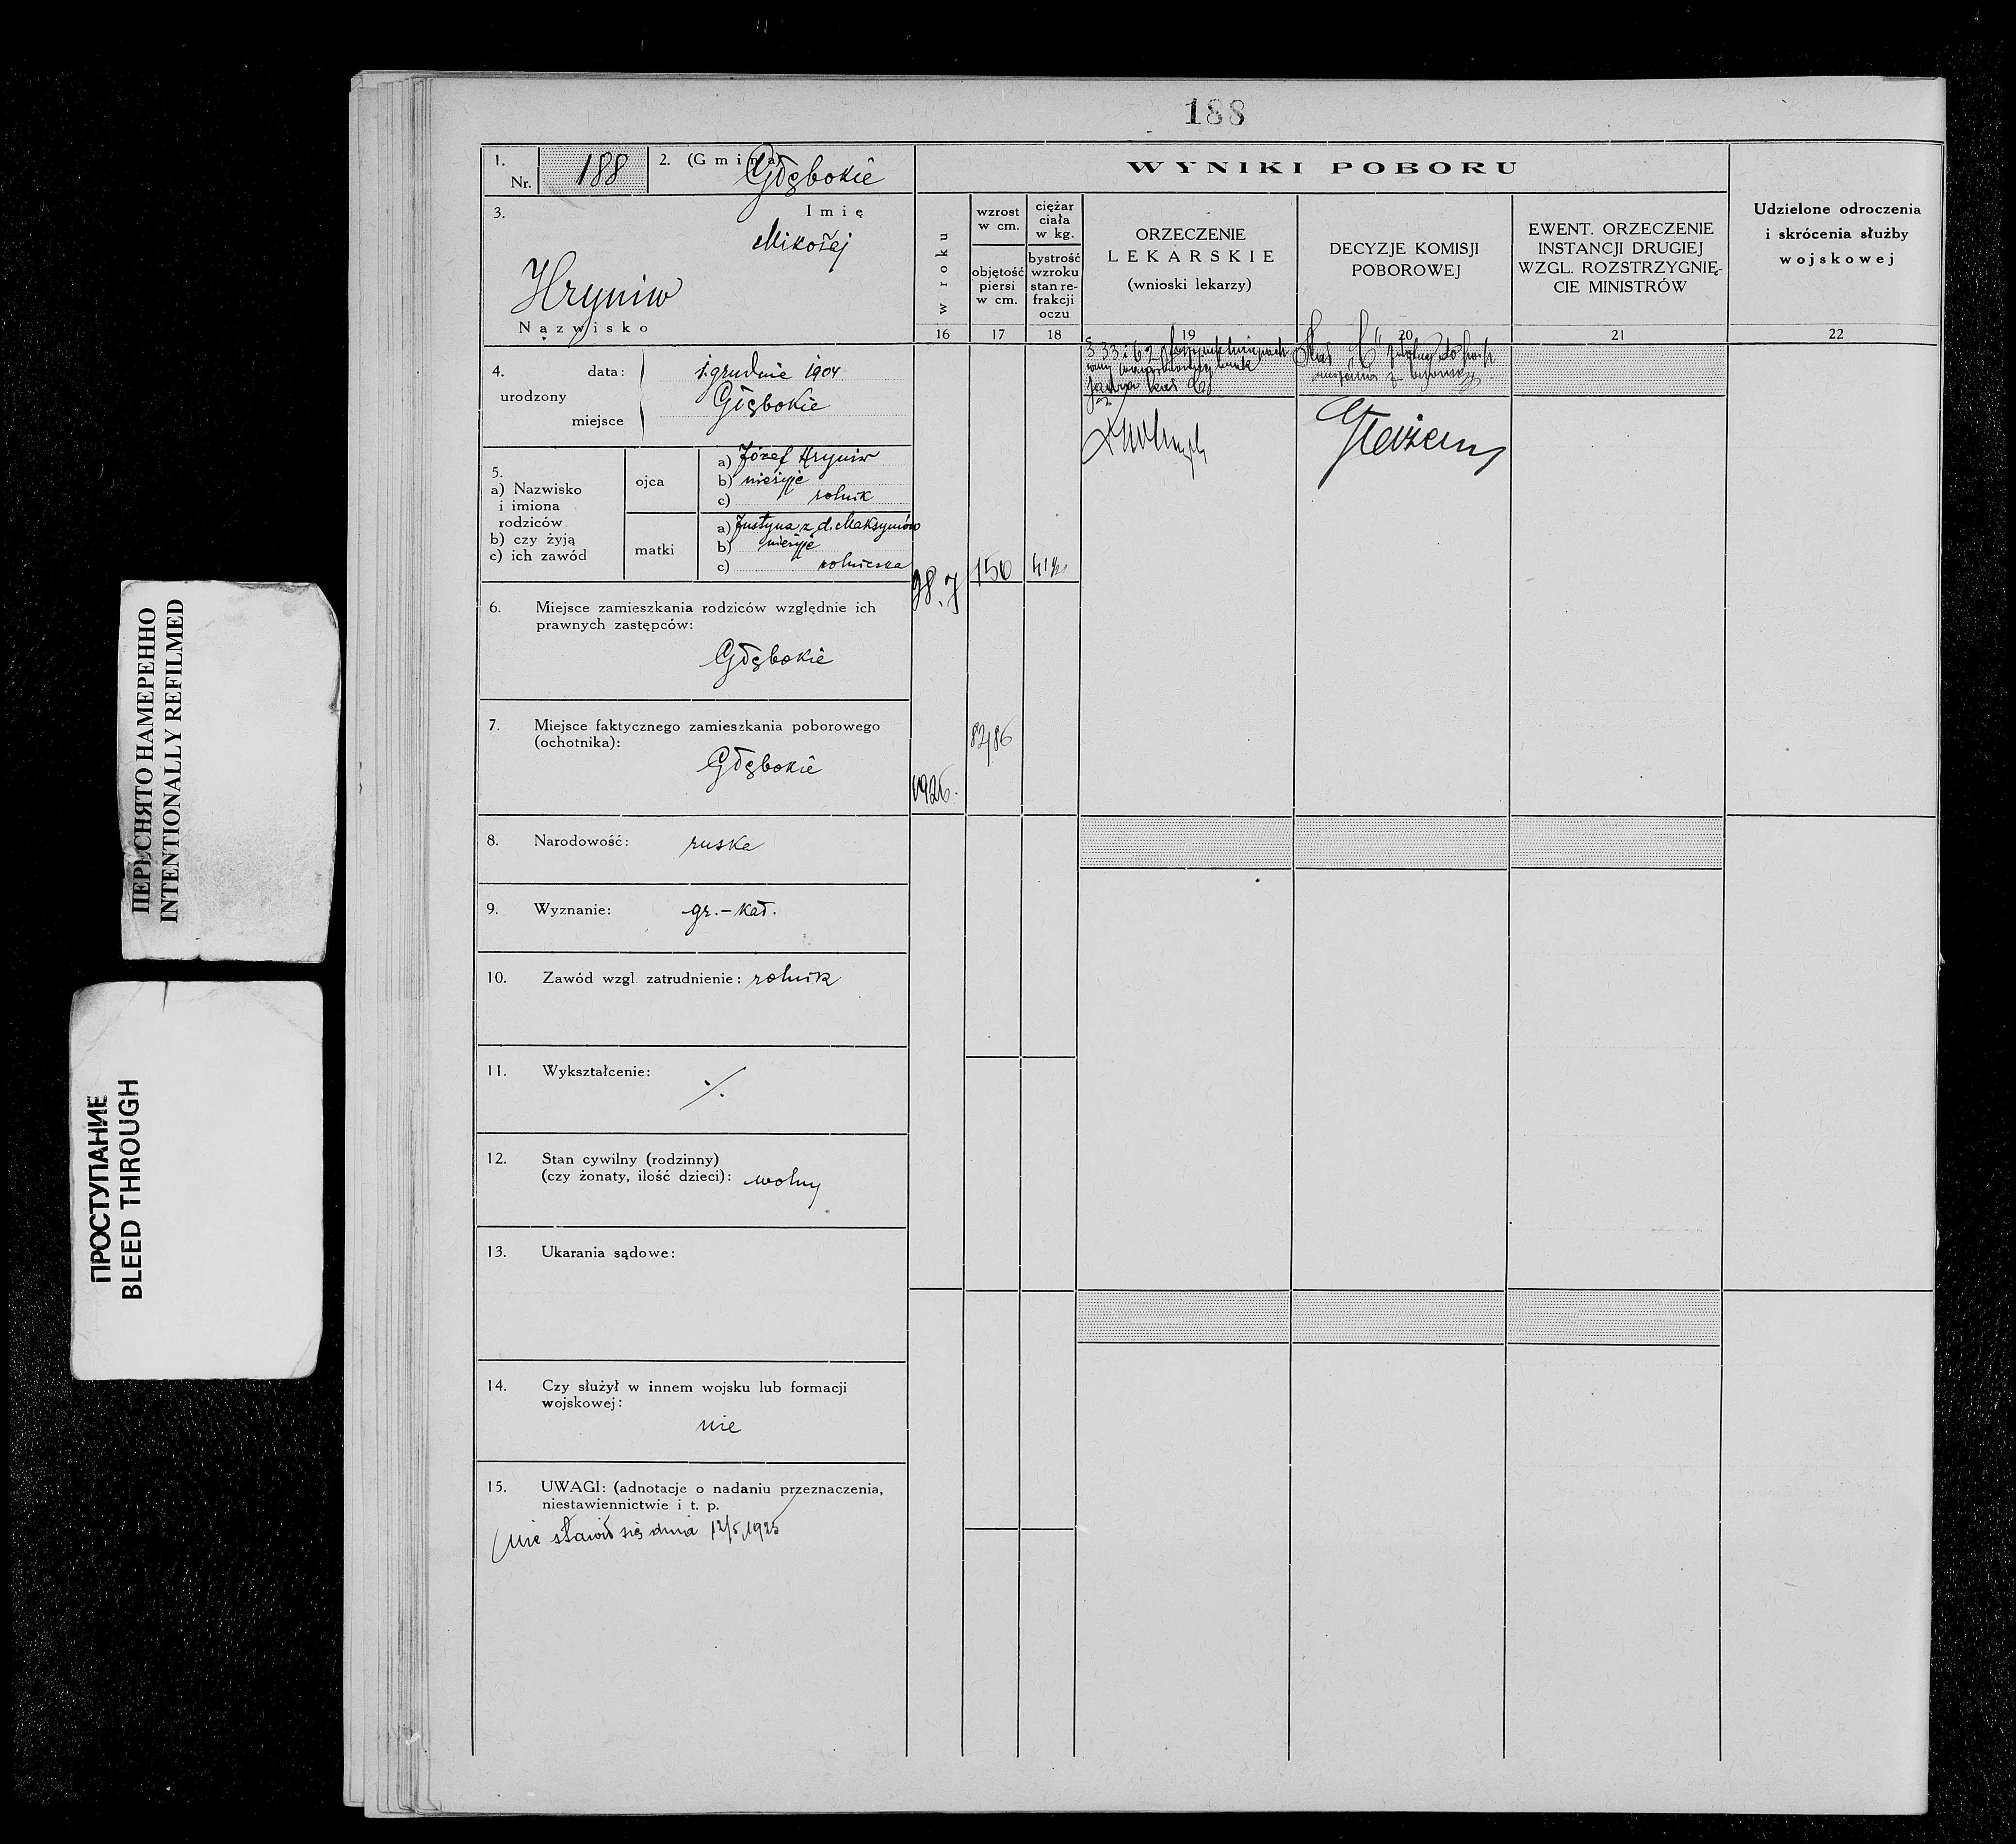 188
1.
Nr. 188
2. (Gmina) Głębokie
WYNIKI POBORU
Udzielone odroczenia
i skrócenia służby
wojskowej
3.
Imię
Mikołaj
Hryniw
Nazwisko
w roku
wzrost
w cm.
objętość
piersi
w cm.
ciężar
ciała
w kg.
bystrość
wzroku
stan re-
frakcji
oczu
ORZECZENIE
LEKARSKIE
(wnioski lekarzy)
DECYZJE KOMISJI
POBOROWEJ
EWENT. ORZECZENIE
INSTANCJI DRUGIEJ
WZGL. ROZSTRZYGNIĘ-
CIE MINISTRÓW
16 17 18 19 20 21 22
4. data: 1. grudnia 1904
urodzony
miejsce Głębokie
5.
a) Nazwisko
i imiona
rodziców
b) czy żyją
c) ich zawód
ojca
a) Józef Hryniw
b) nieżyje
c) rolnik
matki
a) Justyna z d. Maksymów
b) nieżyje
c) rolniczka
98.7 150
82/86
1926.
6. Miejsce zamieszkania rodziców względnie ich
prawnych zastępców:
Głębokie
7. Miejsce faktycznego zamieszkania poborowego
(ochotnika):
Głębokie
8. Narodowość: ruska
9. Wyznanie: gr.-kat.
10. Zawód wzgl. zatrudnienie: rolnik
11. Wykształcenie: ·/.
12. Stan cywilny (rodzinny)
(czy żonaty, ilość dzieci): wolny
13. Ukarania sądowe:
14. Czy służył w innem wojsku lub formacji
wojskowej:
nie
15. UWAGI: (adnotacje o nadaniu przeznaczenia,
niestawiennictwie i t. p.
nie stawił się dnia 12/5 1925
ПЕРЕСНЯТО НАМЕРЕННО
INTENTIONALLY REFILMED
ПРОСТУПАНИЕ
BLEED THROUGH